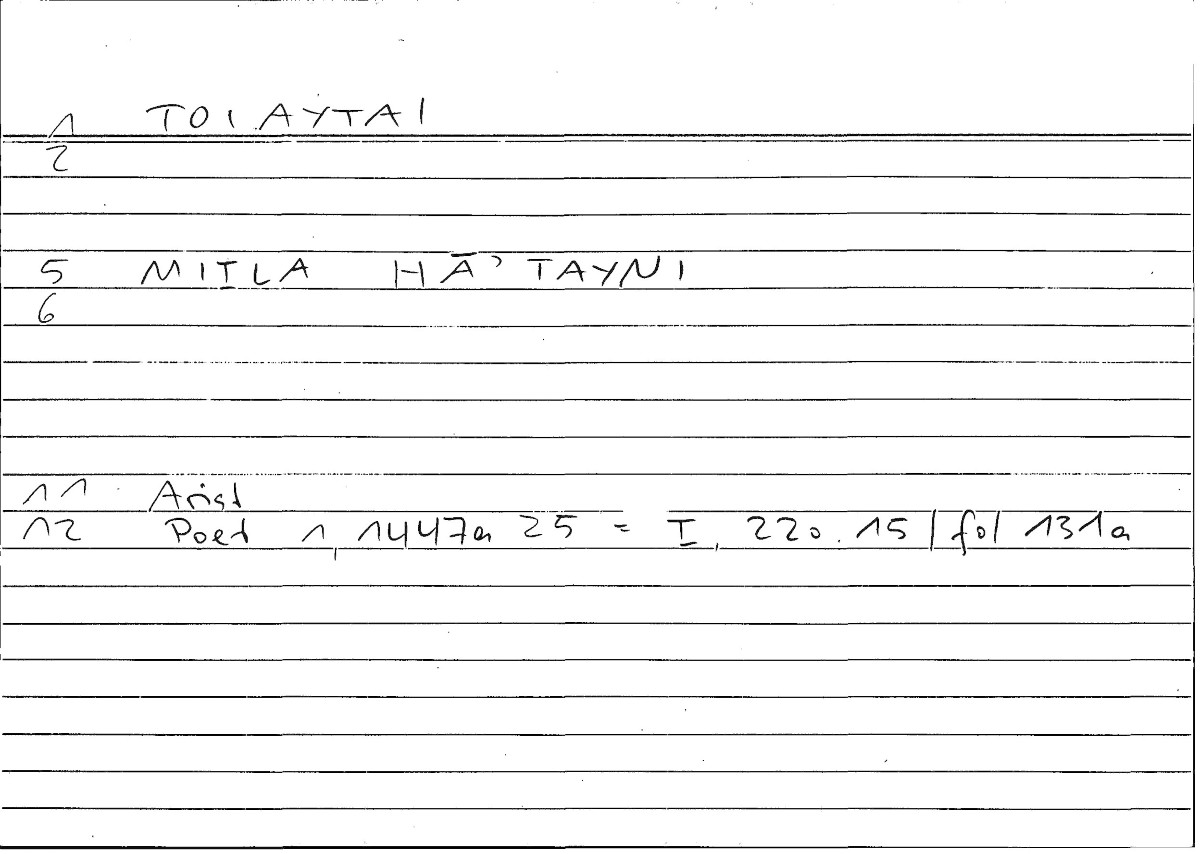 1 TOIAYTAI
2
5 MIṮLA HĀ’TAYNI
6
11 Arist
12 Poet 1, 1447a 25 = I, 220.15 / fol 131a